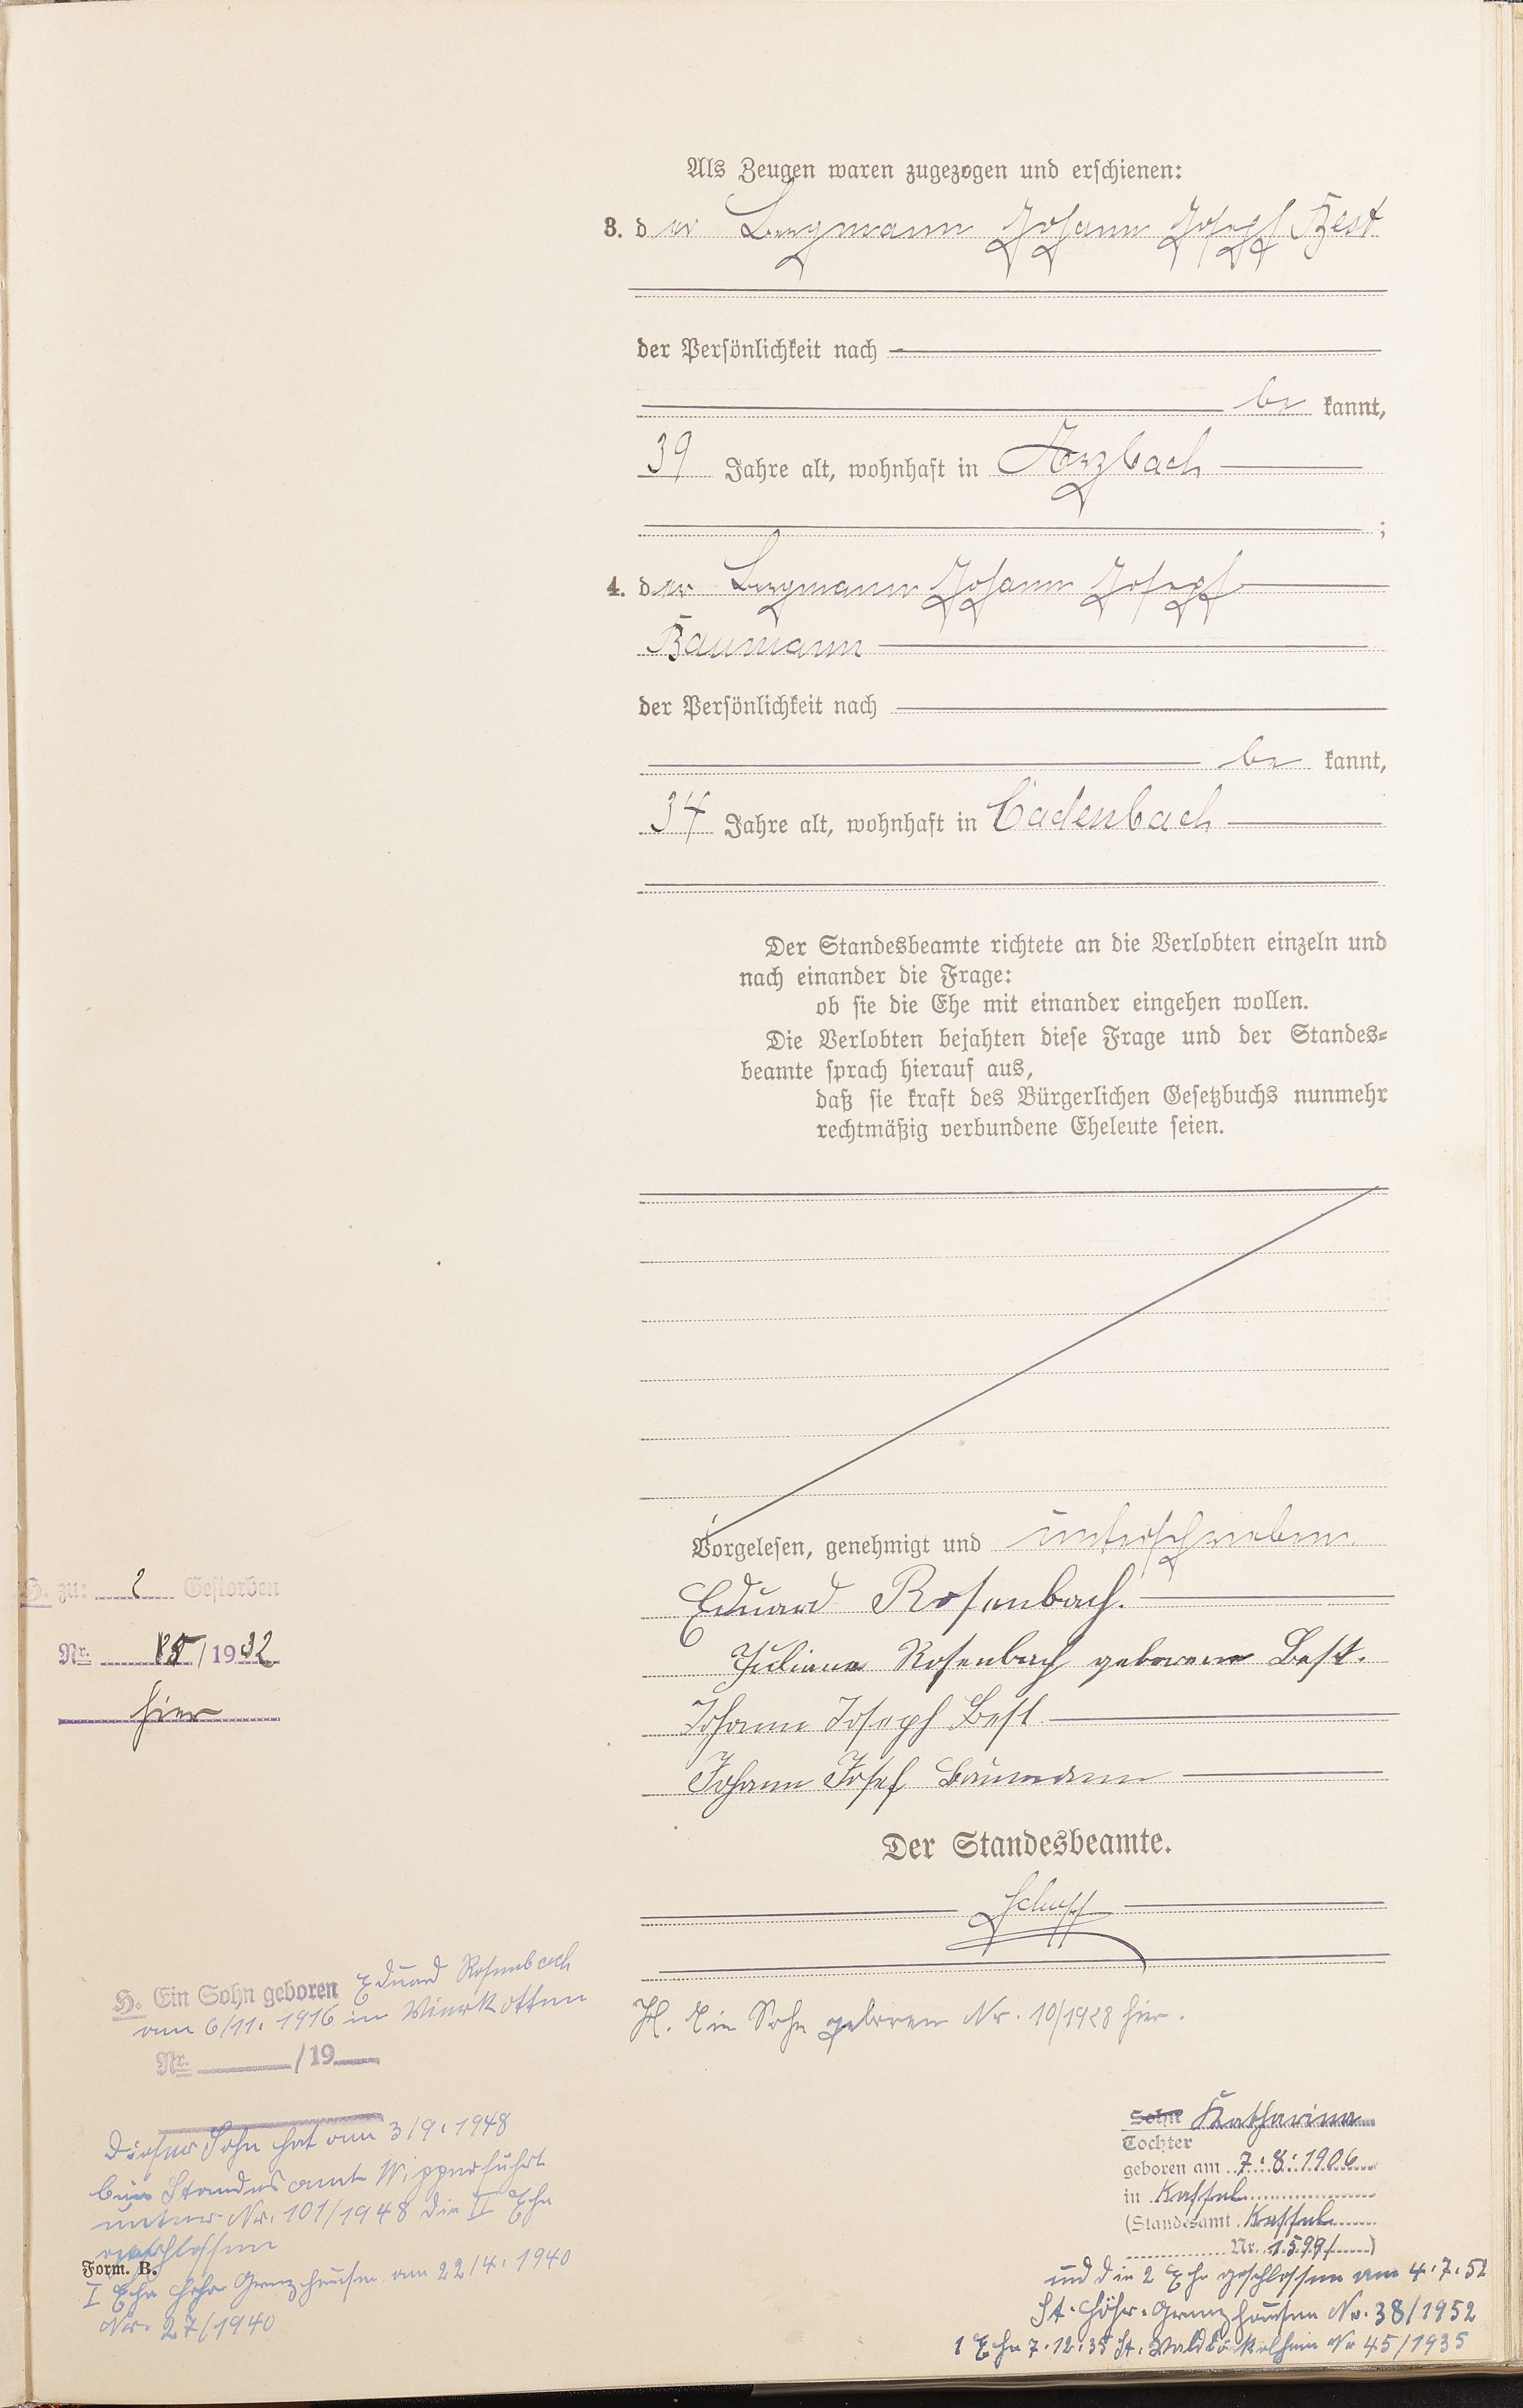 Als Zeugen waren zugezogen und erschienen:
3. der Bergmann Johann Joseph Best
der Persönlichkeit nach
be kannt,
39 Jahre alt, wohnhaft in Arzbach
;
4. der Bergmann Johann Joseph
Baumann
der Persönlichkeit nach
be kannt,
34 Jahre alt, wohnhaft in Cadenbach
Der Standesbeamte richtete an die Verlobten einzeln und
nach einander die Frage:
ob sie die Ehe mit einander eingehen wollen.
Die Verlobten bejahten diese Frage und der Standes-
beamte sprach hierauf aus,
daß sie kraft des Bürgerlichen Gesetzbuchs nunmehr
rechtmäßig verbundene Eheleute seien.
Vorgelesen, genehmigt und unterschrieben.
Eduard Rosenbach.
Juliana Rosenbach geborene Best.
Johann Joseph Best
Johann Josef Baumann
Der Standesbeamte.
Schupp
H. zu: 2 Gestorben
Nr. /1932
hier
H. Ein Sohn geboren Eduard Rosenbach
am 6/11. 1916 in
Nr. /19
Dieser Sohn hat am 3/9. 1948
beim Standesamt Wipperfürth
unter Nr. 101/1948 die II Ehe
geschlossen
Form. B.
I Ehe Höhr Grenzhausen am 22/4. 1940
Nr. 27/1940
H. Ein Sohn geboren Nr. 10/1928 hier.
Sohn Katharina
Tochter
geboren am 7.8.1906
in Kassel
(Standesamt Kassel
Nr. 1599/ )
und die 2 Ehe geschlossen am 4.7.52
St. Höhr-Grenzhausen Nr. 38/1952
1 Ehe 7.12.35 St. Waldböckelheim Nr 45/1935